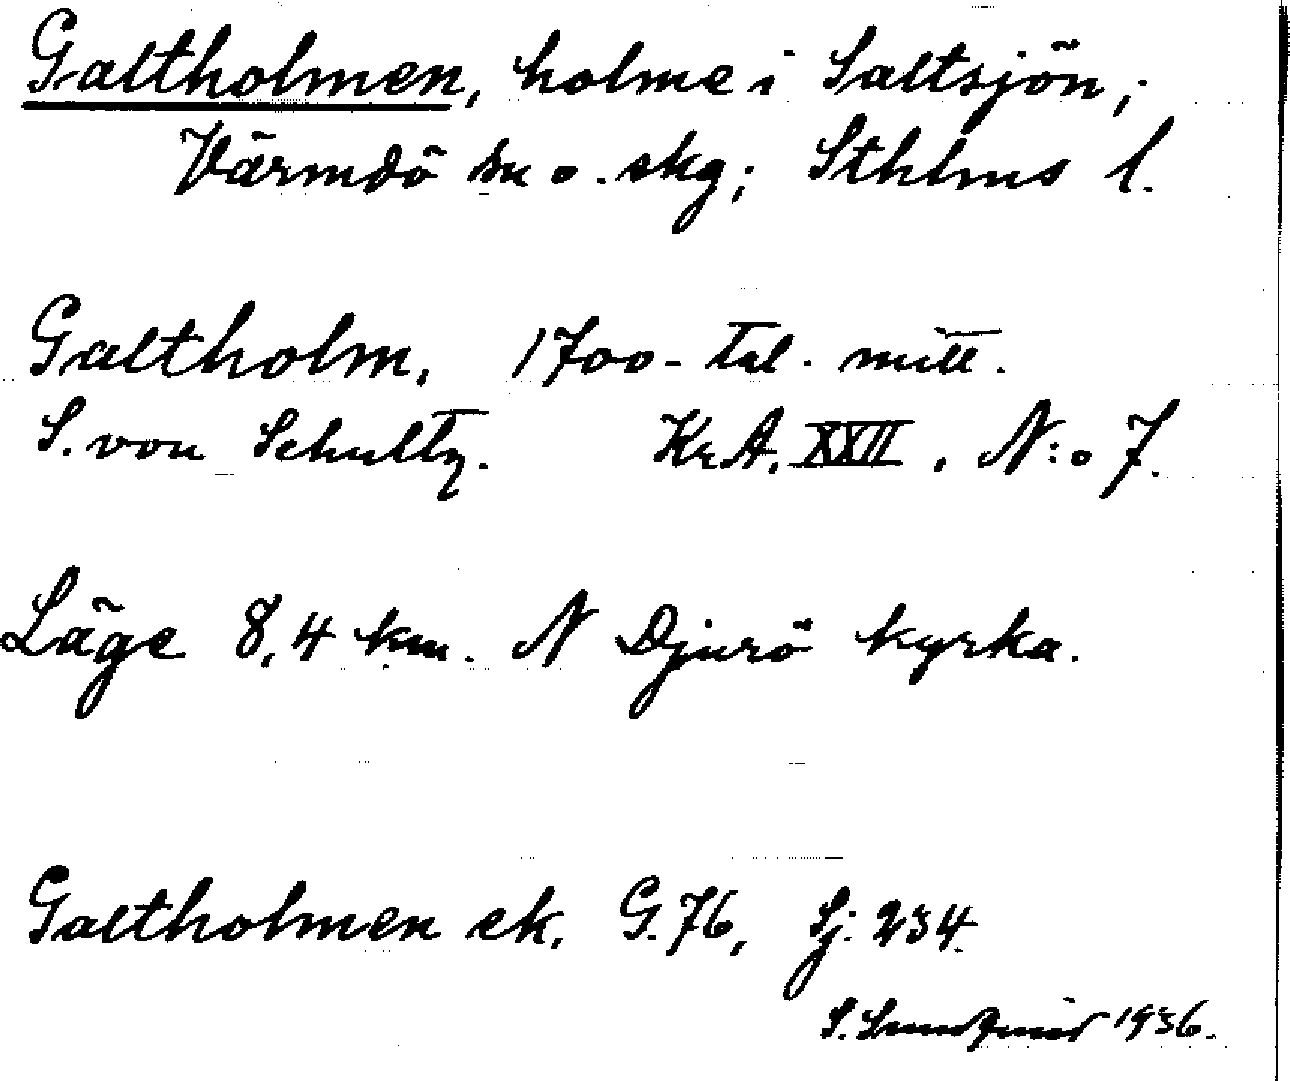 Galtholmen, holme i Saltsjön,
Värmdö sn o. skg; Sthlms l.
Galtholm, 1700-tal. mitt.
S. von Schultz. Kr.A. XXII, N:o 7.
Läge 8,4 km. N Djurö kyrka.
Galtholmen ek. G. 76, Sj: 234
S. 1936.